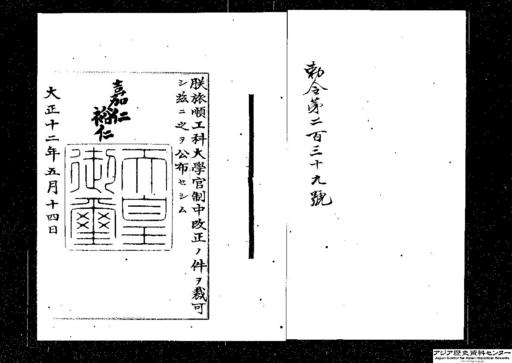 勅令第二百三十九號
朕旅順工科大學官制中改正ノ件ヲ裁可
シ茲ニ之ヲ公布セシム
嘉仁
裕仁
天皇御璽
大正十二年五月十四日
アジア歴史資料センター
Japan Center for Asian Historical Records